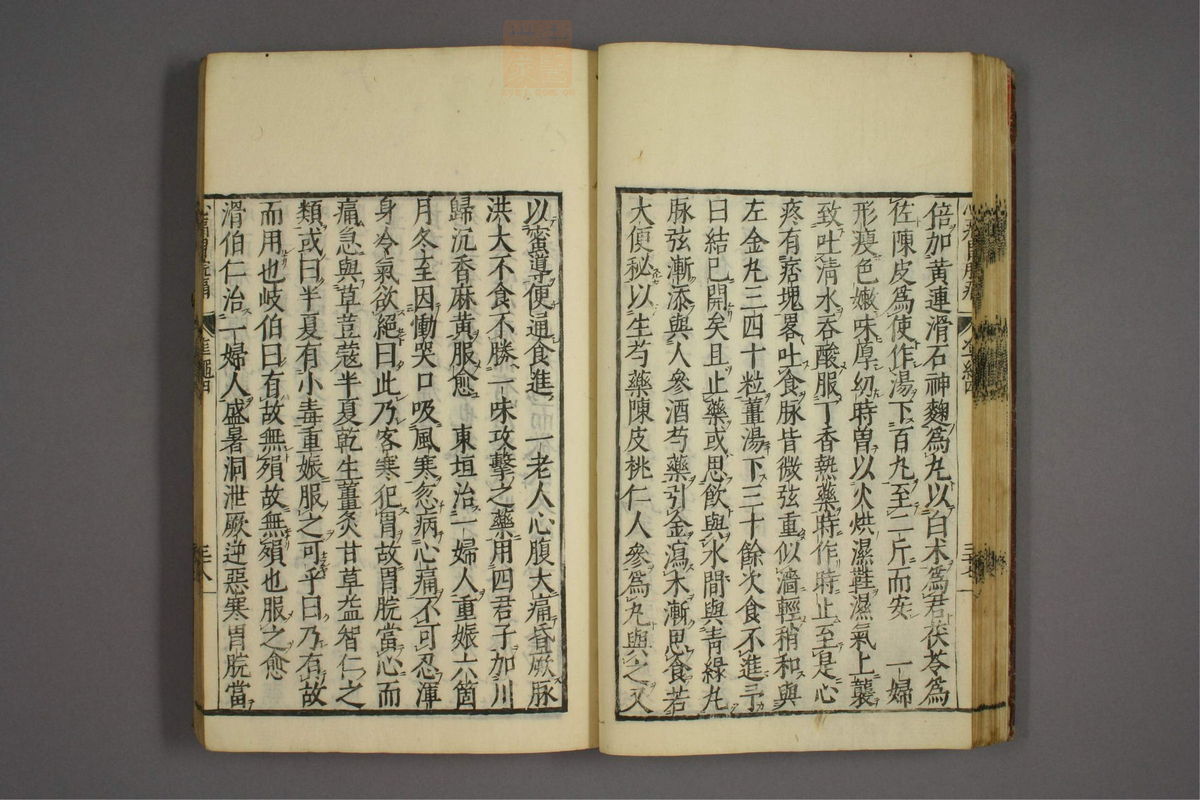 倍加黄連滑石神麴為丸以白朮為君茯苓為
佐陳皮為使作湯下百丸至二斤而安　一婦
形瘦色嫩味厚幼時曽以火烘濕鞋濕氣上襲
致吐清水吞酸服丁香熱藥時作時止至是心
疼有痞塊畧吐食脉皆微弦重似濇輕稍和與
左金丸三四十粒薑湯下三十餘次食不進予
曰結已開矣且止藥或思飲與水間與青綠丸
脉弦漸添與人參酒芍藥引金瀉木漸思食若
大便秘以生芍藥陳皮桃仁人參為丸與之又
以蜜導便通食進　一老人心腹大痛昏厥脉
洪大不食不勝一味攻擊之藥用四君子加川
歸沉香麻黄服愈　東垣治一婦人重娠六箇
月冬至因慟哭口吸風寒忽病心痛不可忍渾
身冷氣欲絕曰此乃客寒犯胃故胃脘當心而
痛急與草荳蔻半夏乾生薑炙甘草益智仁之
類或曰半夏有小毒重娠服之可乎曰乃有故
而用也岐伯曰有故無殞故無殞也服之愈
滑伯仁治一婦人盛暑洞泄厥逆惡寒胃脘當